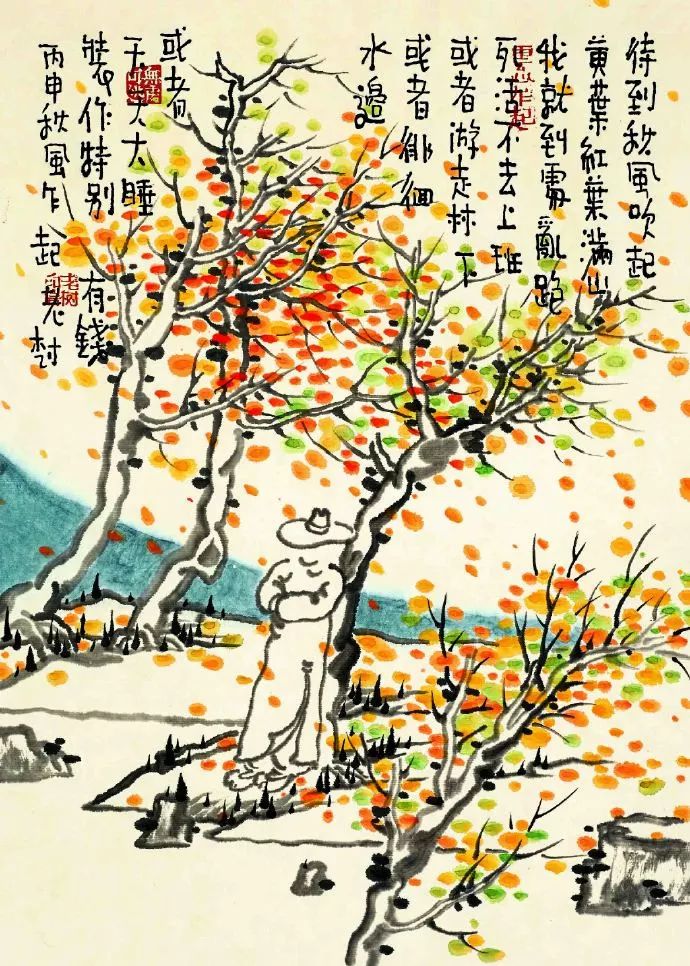 待到秋風吹起
黄葉紅葉滿山
我就到處亂跑
死活不去上班
或者游走林下
或者徘徊
水邊
或者
大睡
裝作特别有錢
丙申秋風乍起老树
老树